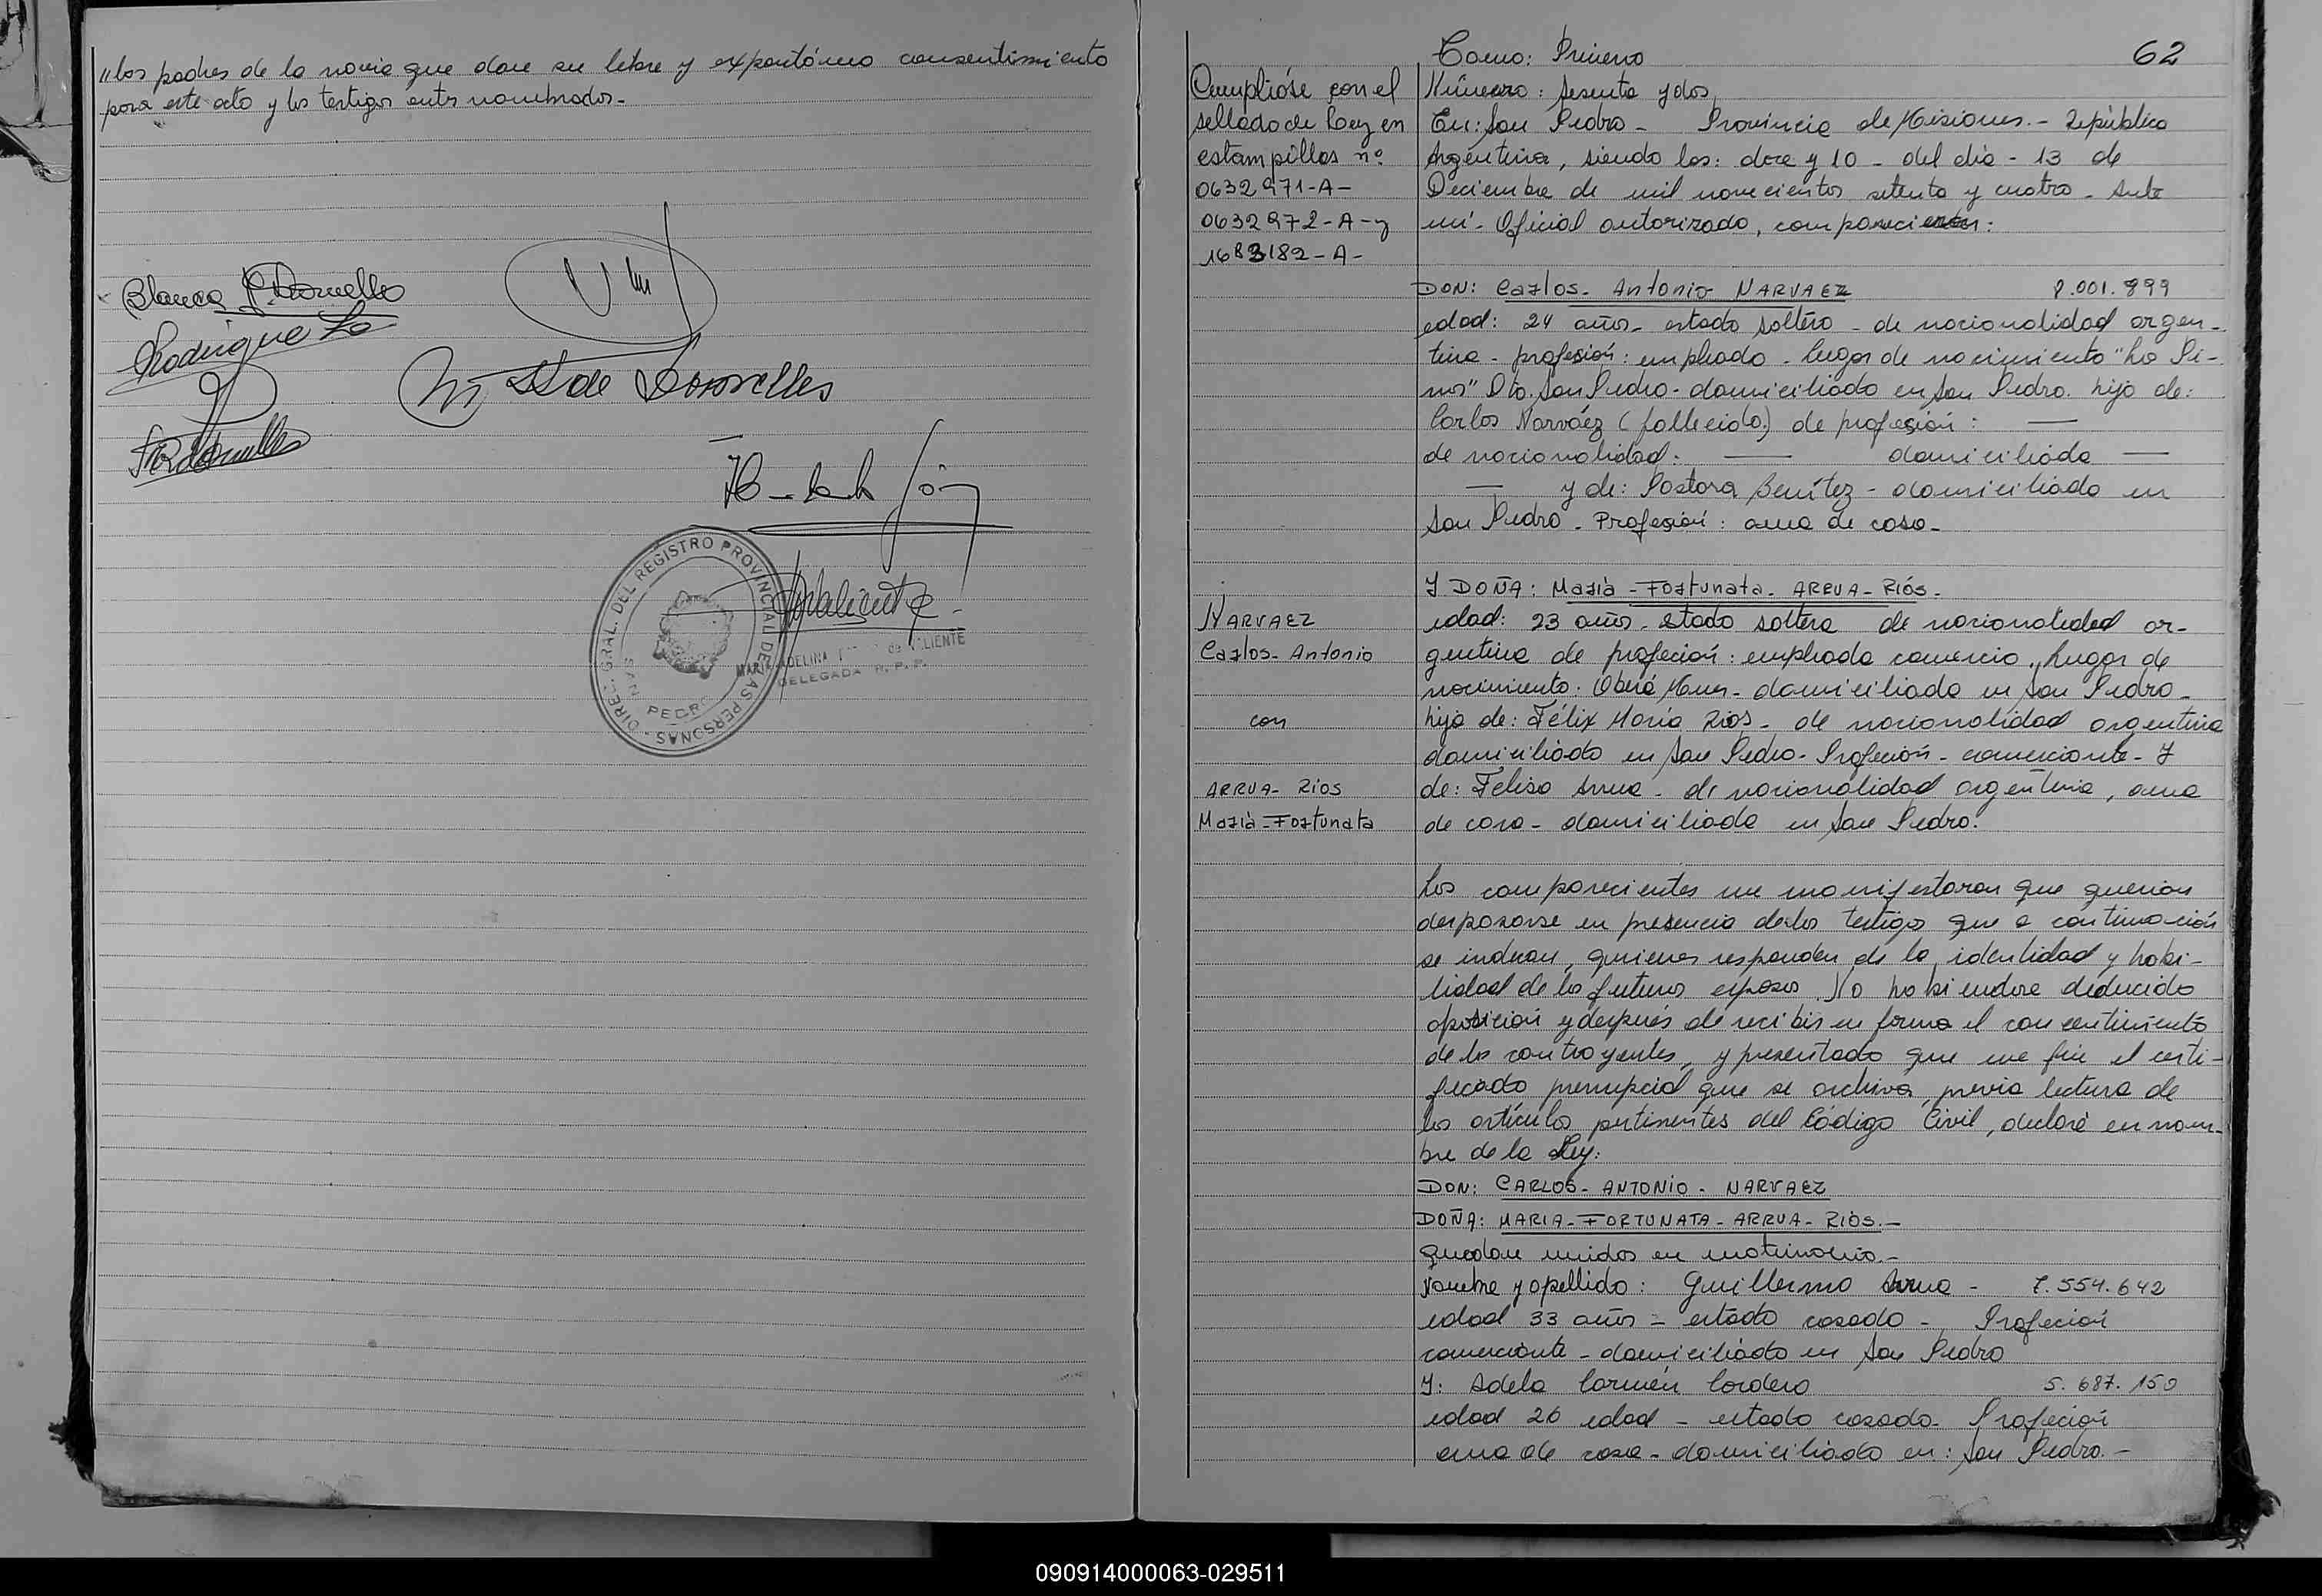 "los padres de la novia que dan su libre y expontáneo consentimiento
para este acto y los testigos antes nombrados.-
Blanca
Rodrigue
DIREC. GRAL. DEL REGISTRO PROVINCIAL DE LAS PERSONAS -
SAN PEDRO
MARIA ADELINA de VALIENTE
DELEGADA R. P. P.
62
Cumplióse con el
sellado de Ley en
estampillas nº
0632971-A-
0632972-A-y
1683182-A-
NARVAEZ
Carlos-Antonio
con
ARRUA-Rios
María-Fortunata
Tomo: Primero
Número: Sesenta y dos
En: San Pedro - Provincia de Misiones.- República
Argentina, siendo las: doce y 10 - del día - 13 de
Deciembre de mil novecientos setenta y cuatro - Ante
mí - Oficial autorizado, comparecieron:
DON: Carlos-Antonio-NARVAEZ 8.001.899
edad: 24 años - estado soltero - de nacionalidad argen-
tina - profesión: empleado - lugar de nacimiento "Lo Pi-
nos" Dto. San Pedro - domiciliado en San Pedro. hijo de:
Carlos Narváez (fallecido) de profesión: —
de nacionalidad: — domiciliado —
— y de: Pastora Benítez - domiciliada en
San Pedro - Profesión: ama de casa -
Y DOÑA: María-Fortunata-ARRUA-Ríos-
edad: 23 años - estado soltera de nacionalidad ar-
gentina de profeción: empleada comercio. Lugar de
nacimiento: Oberá Mnes - domiciliada en San Pedro -
hija de: Félix María Rios - de nacionalidad argentina
domiciliado en San Pedro - Profeción - comerciante - Y
de: Felisa Arrua - de nacionalidad argentina, ama
de casa - domiciliada en San Pedro.
Los comparecientes me manifestaron que querían
desposarse en presencia de los testigos que a continuación
se indican, quienes responden de la identidad y habi-
lidad de los futuros esposos. No habiendose deducido
oposición y después de recibir en forma el concentimiento
de los contrayentes, y presentado que me fué el certi-
ficado prenupcial que se archiva, previa lectura de
los artículos pertinentes del Código Civil, declaré en nom-
bre de la Ley:
DON: CARLOS-ANTONIO-NARVAEZ
DOÑA: MARIA-FORTUNATA-ARRUA-RIOS.-
quedan unidos en matrimonio.-
Nombre y apellido: Guillermo Arrua - 7.554.642
edad 33 años - estado casado - Profeción
comerciante - domiciliado en San Pedro
Y: Adela Carmen Cordero 5.687.150
edad 26 edad - estado casada - Profeción
ama de casa - domiciliada en: San Pedro.-
090914000063-029511